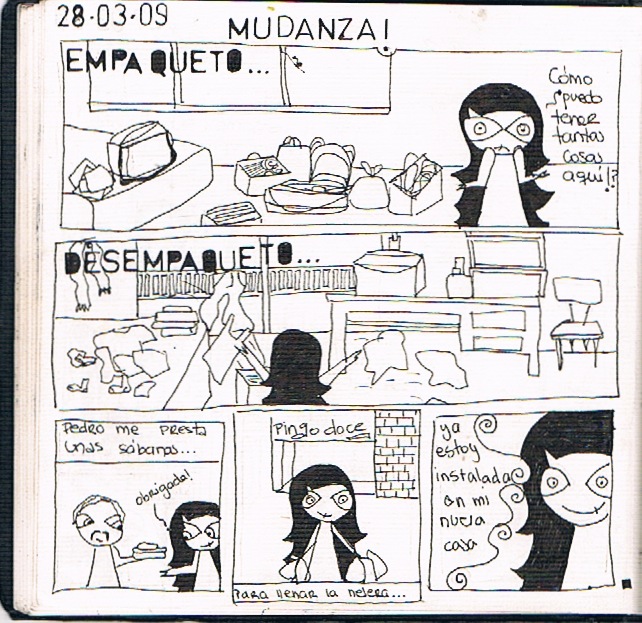 28-03-09
MUDANZA!
EMPAQUETO...
Cómo
puedo
tener
tantas
cosas
aquí!?
DESEMPAQUETO...
Pedro me presta
unas sábanas...
obrigada!
Pingo doce
para llenar la nevera...
ya
estoy
instalada
en mi
nueva
casa